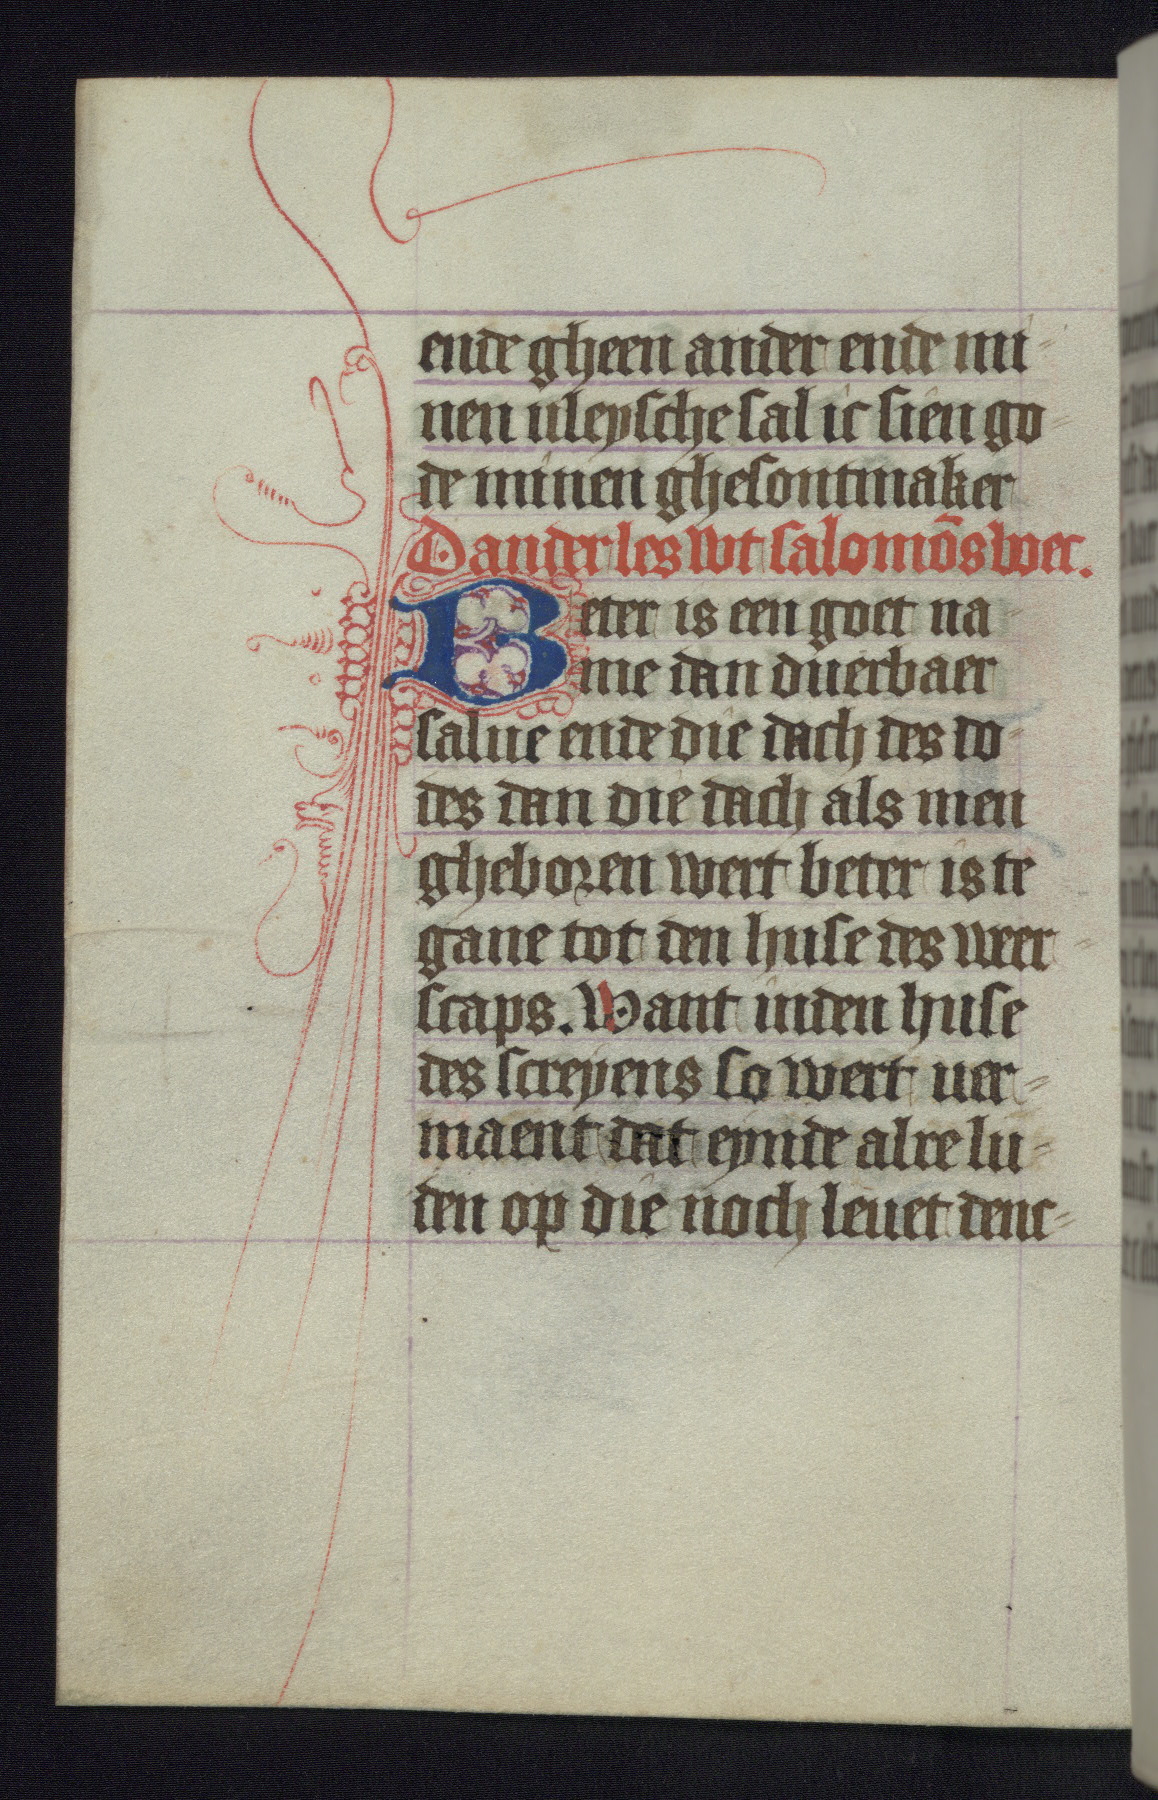 ende gheen ander ende mi-
nen vleysche sal ic sien go-
de minen ghesontmaker
Dander les wt salomōs woer.
Beter is een goet na-
me dan duerbaer
salue ende die dach des do-
des dan die dach als men
gheboren wert beter is te
gane tot den huse des weer-
scaps. Want inden huse
des screyens so wert ver-
maent dat eynde alre lu-
den op die noch leuet denc-